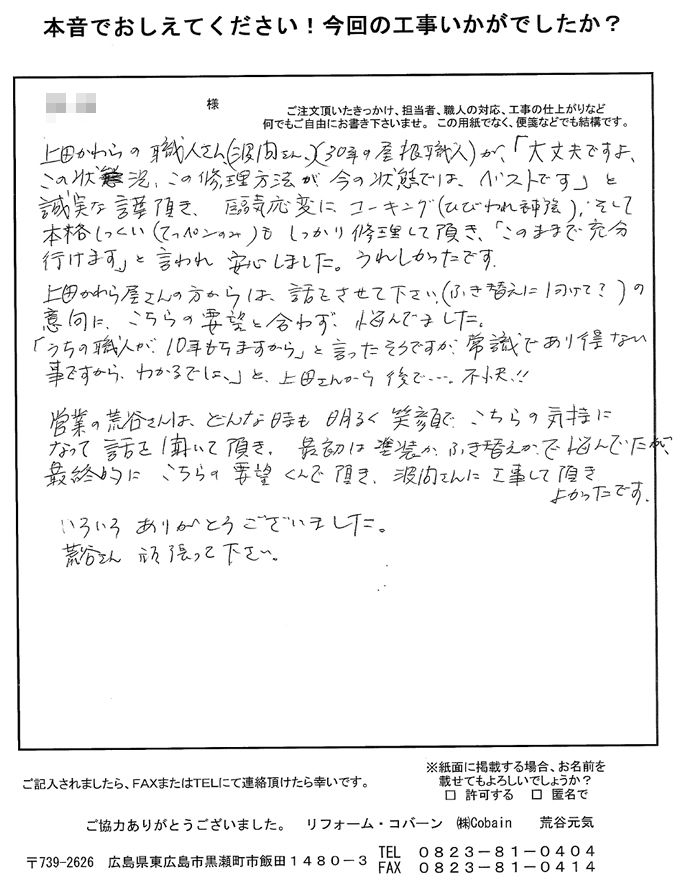 本音でおしえてください！今回の工事いかがでしたか？
様
ご注文頂いたきっかけ、担当者、職人の対応、工事の仕上がりなど
何でもご自由にお書き下さいませ。この用紙でなく、便箋などでも結構です。
上田かわらの職人さん(波間さん、)(30年の屋根職人)が、「大丈夫ですよ、
この状態況、この修理方法が今の状態では、ベストです」と
誠実な言葉頂き、臨機応変に、コーキング(ひびわれ補強)、そして
本格しっくい(てっペンのみ)もしっかり修理して頂き、「このままで充分
行けます」と言われ 安心しました。うれしかったです。
上田かわら屋さんの方からは、話をさせて下さい、(ふき替えに向けて？)の
意向に、こちらの要望と合わず、悩んでました。
「うちの職人が、10年もちますから」と言ったそうですが、常識であり得ない
事ですから、わかるでしょ、」と、上田さんから後で…。不快!!
営業の荒谷さんは、どんな時も明るく笑顔で、こちらの気持に
なって話を聞いて頂き、最初は塗装か、ふき替えかで悩んでたが、
最終的にこちらの要望くんで頂き、波間さんに工事して頂き
よかったです。
いろいろありがとうございました。
荒谷さん 頑張って下さい。
※紙面に掲載する場合、お名前を
載せてもよろしいでしょうか？
□ 許可する □ 匿名で
ご記入されましたら、FAXまたはTELにて連絡頂けたら幸いです。
ご協力ありがとうございました。 リフォーム・コバーン ㈱Cobain 荒谷元気
〒739-2626 広島県東広島市黒瀬町市飯田１４８０－３
TEL ０８２３－８１－０４０４
FAX ０８２３－８１－０４１４